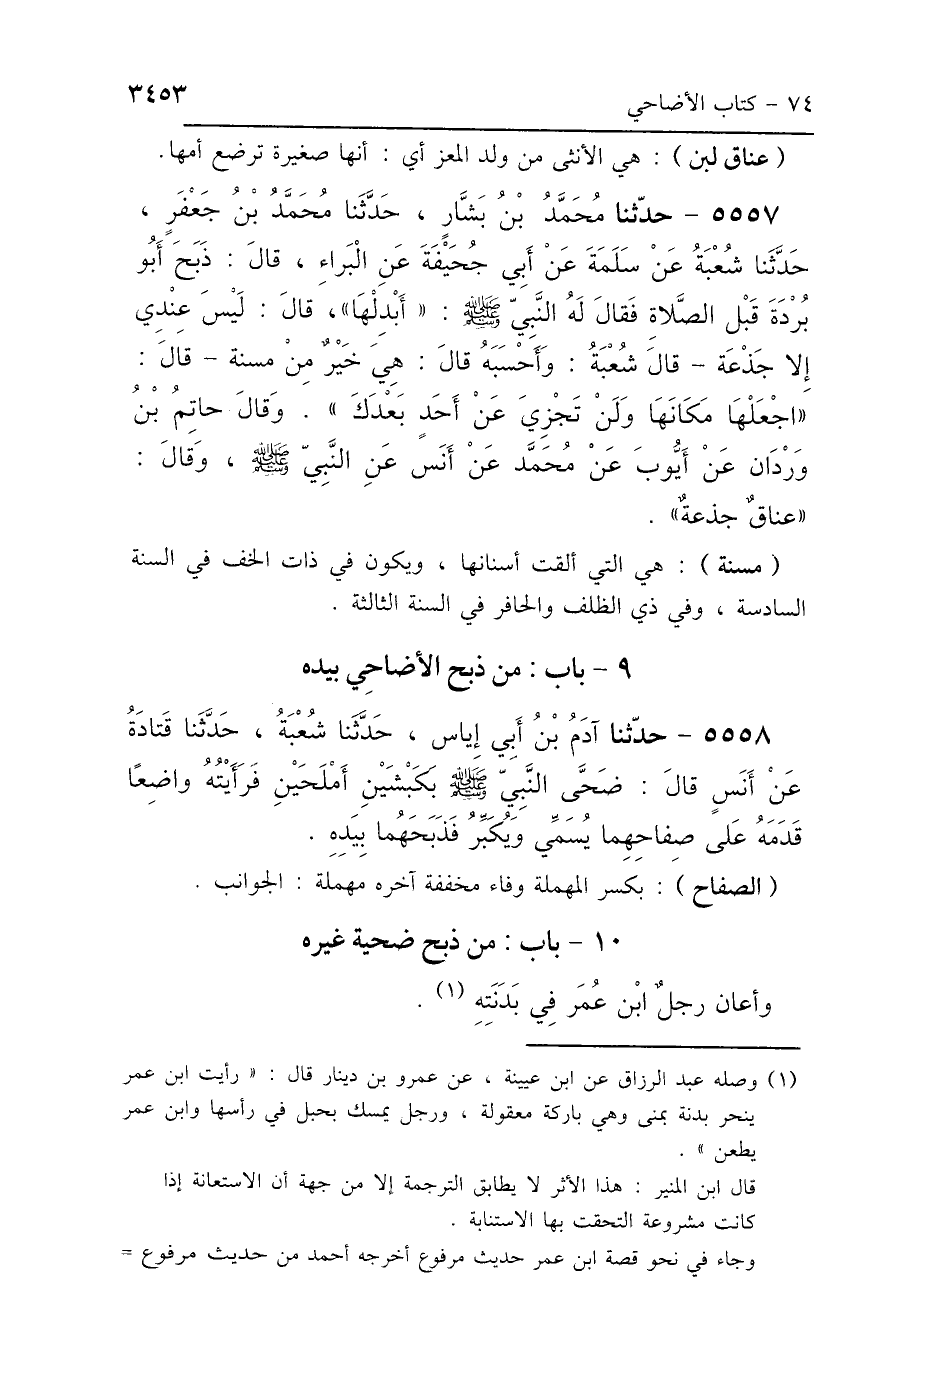 ٧٤ - كتاب الأضاحي
٣٤٥٣
( عناق لبن ) : هي الأنثى من ولد المعز أي : أنها صغيرة ترضع أمها.
٥٥٥٧ - حدّثنا مُحَمَّدُ بْنُ بَشَّارٍ ، حَدَّثَنا مُحَمَّدُ بْنُ جَعْفَرٍ ،
حَدَّثَنا شُعْبَةُ عَنْ سَلَمَةَ عَنْ أَبِي جُحَيْفَةَ عَنِ الْبَراءِ ، قالَ : ذَبَحَ أَبُو
بُرْدَةَ قَبْل الصَّلاةِ فَقالَ لَهُ النَّبِيّ ﷺ : « أَبْدلْهَا»، قالَ : لَيْسَ عِنْدِي
إِلا جَذْعَة - قالَ شُعْبَةُ : وَأَحْسَبَهُ قالَ : هِيَ خَيْرٌ مِنْ مسنة - قالَ :
«اجْعَلْهَا مَكَانَهَا وَلَنْ تَجْزِيَ عَنْ أَحَدٍ بَعْدَكَ » . وَقالَ حاتِمُ بْنُ
وَرْدَان عَنْ أَيُّوبَ عَنْ مُحَمَّد عَنْ أَنَس عَنِ النَّبِيّ ﷺ ، وَقالَ :
«عناقٌ جذعةٌ» .
( مسنة ) : هي التي ألقت أسنانها ، ويكون في ذات الخف في السنة
السادسة ، وفي ذي الظلف والحافر في السنة الثالثة .
٩ - باب : من ذبح الأضاحي بيده
٥٥٥٨ - حدّثنا آدَمُ بْنُ أَبِي إِياس ، حَدَّثَنا شُعْبَةُ ، حَدَّثَنا قَتادَةُ
عَنْ أَنَسٍ قالَ : ضَحَّى النَّبِيّ ﷺ بِكَبْشَيْنِ أَمْلَحَيْنِ فَرَأَيْتُهُ واضِعًا
قَدَمَهُ عَلَى صِفاحِهِما يُسَمِّي وَيُكَبِّرُ فَذَبَحَهُما بِيَدِهِ .
( الصفاح ) : بكسر المهملة وفاء مخففة آخره مهملة : الجوانب .
١٠ - باب : من ذبح ضحية غيره
وأعان رجلٌ ابْن عُمَر فِي بَدَنَتِهِ (١) .
(١) وصله عبد الرزاق عن ابن عيينة ، عن عمرو بن دينار قال : « رأيت ابن عمر
ينحر بدنة بمنى وهي باركة معقولة ، ورجل يمسك بحبل في رأسها وابن عمر
يطعن » .
قال ابن المنير : هذا الأثر لا يطابق الترجمة إلا من جهة أن الاستعانة إذا
كانت مشروعة التحقت بها الاستنابة .
وجاء في نحو قصة ابن عمر حديث مرفوع أخرجه أحمد من حديث مرفوع =